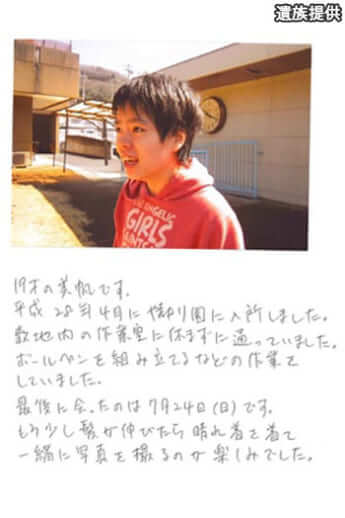 遺族提供
ANGELIC
GIRLS
19才の美帆です。
平成28年4月にやまゆり園に入所しました。
敷地内の作業室に休まずに通っていました。
ボールペンを組み立てるなどの作業を
していました。
最後に会ったのは7月24日(日)です。
もう少し髪が伸びたら晴れ着を着て
一緒に写真を撮るのが楽しみでした。